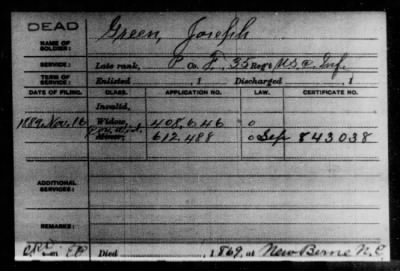 DEAD
Green, Joseph
NAME OF SOLDIER:
SERVICE: Late rank, P Co. F, 35 Reg't U.S.C. Inf.
TERM OF SERVICE: Enlisted , 1 Discharged , 1
DATE OF FILING. CLASS. APPLICATION NO. LAW. CERTIFICATE NO.
Invalid,
1889, Nov. 16 Widow, 408.646 o
Minor, 612.488 o 843038
ADDITIONAL SERVICES:
REMARKS:
Died , 1869, at New Berne N.C.